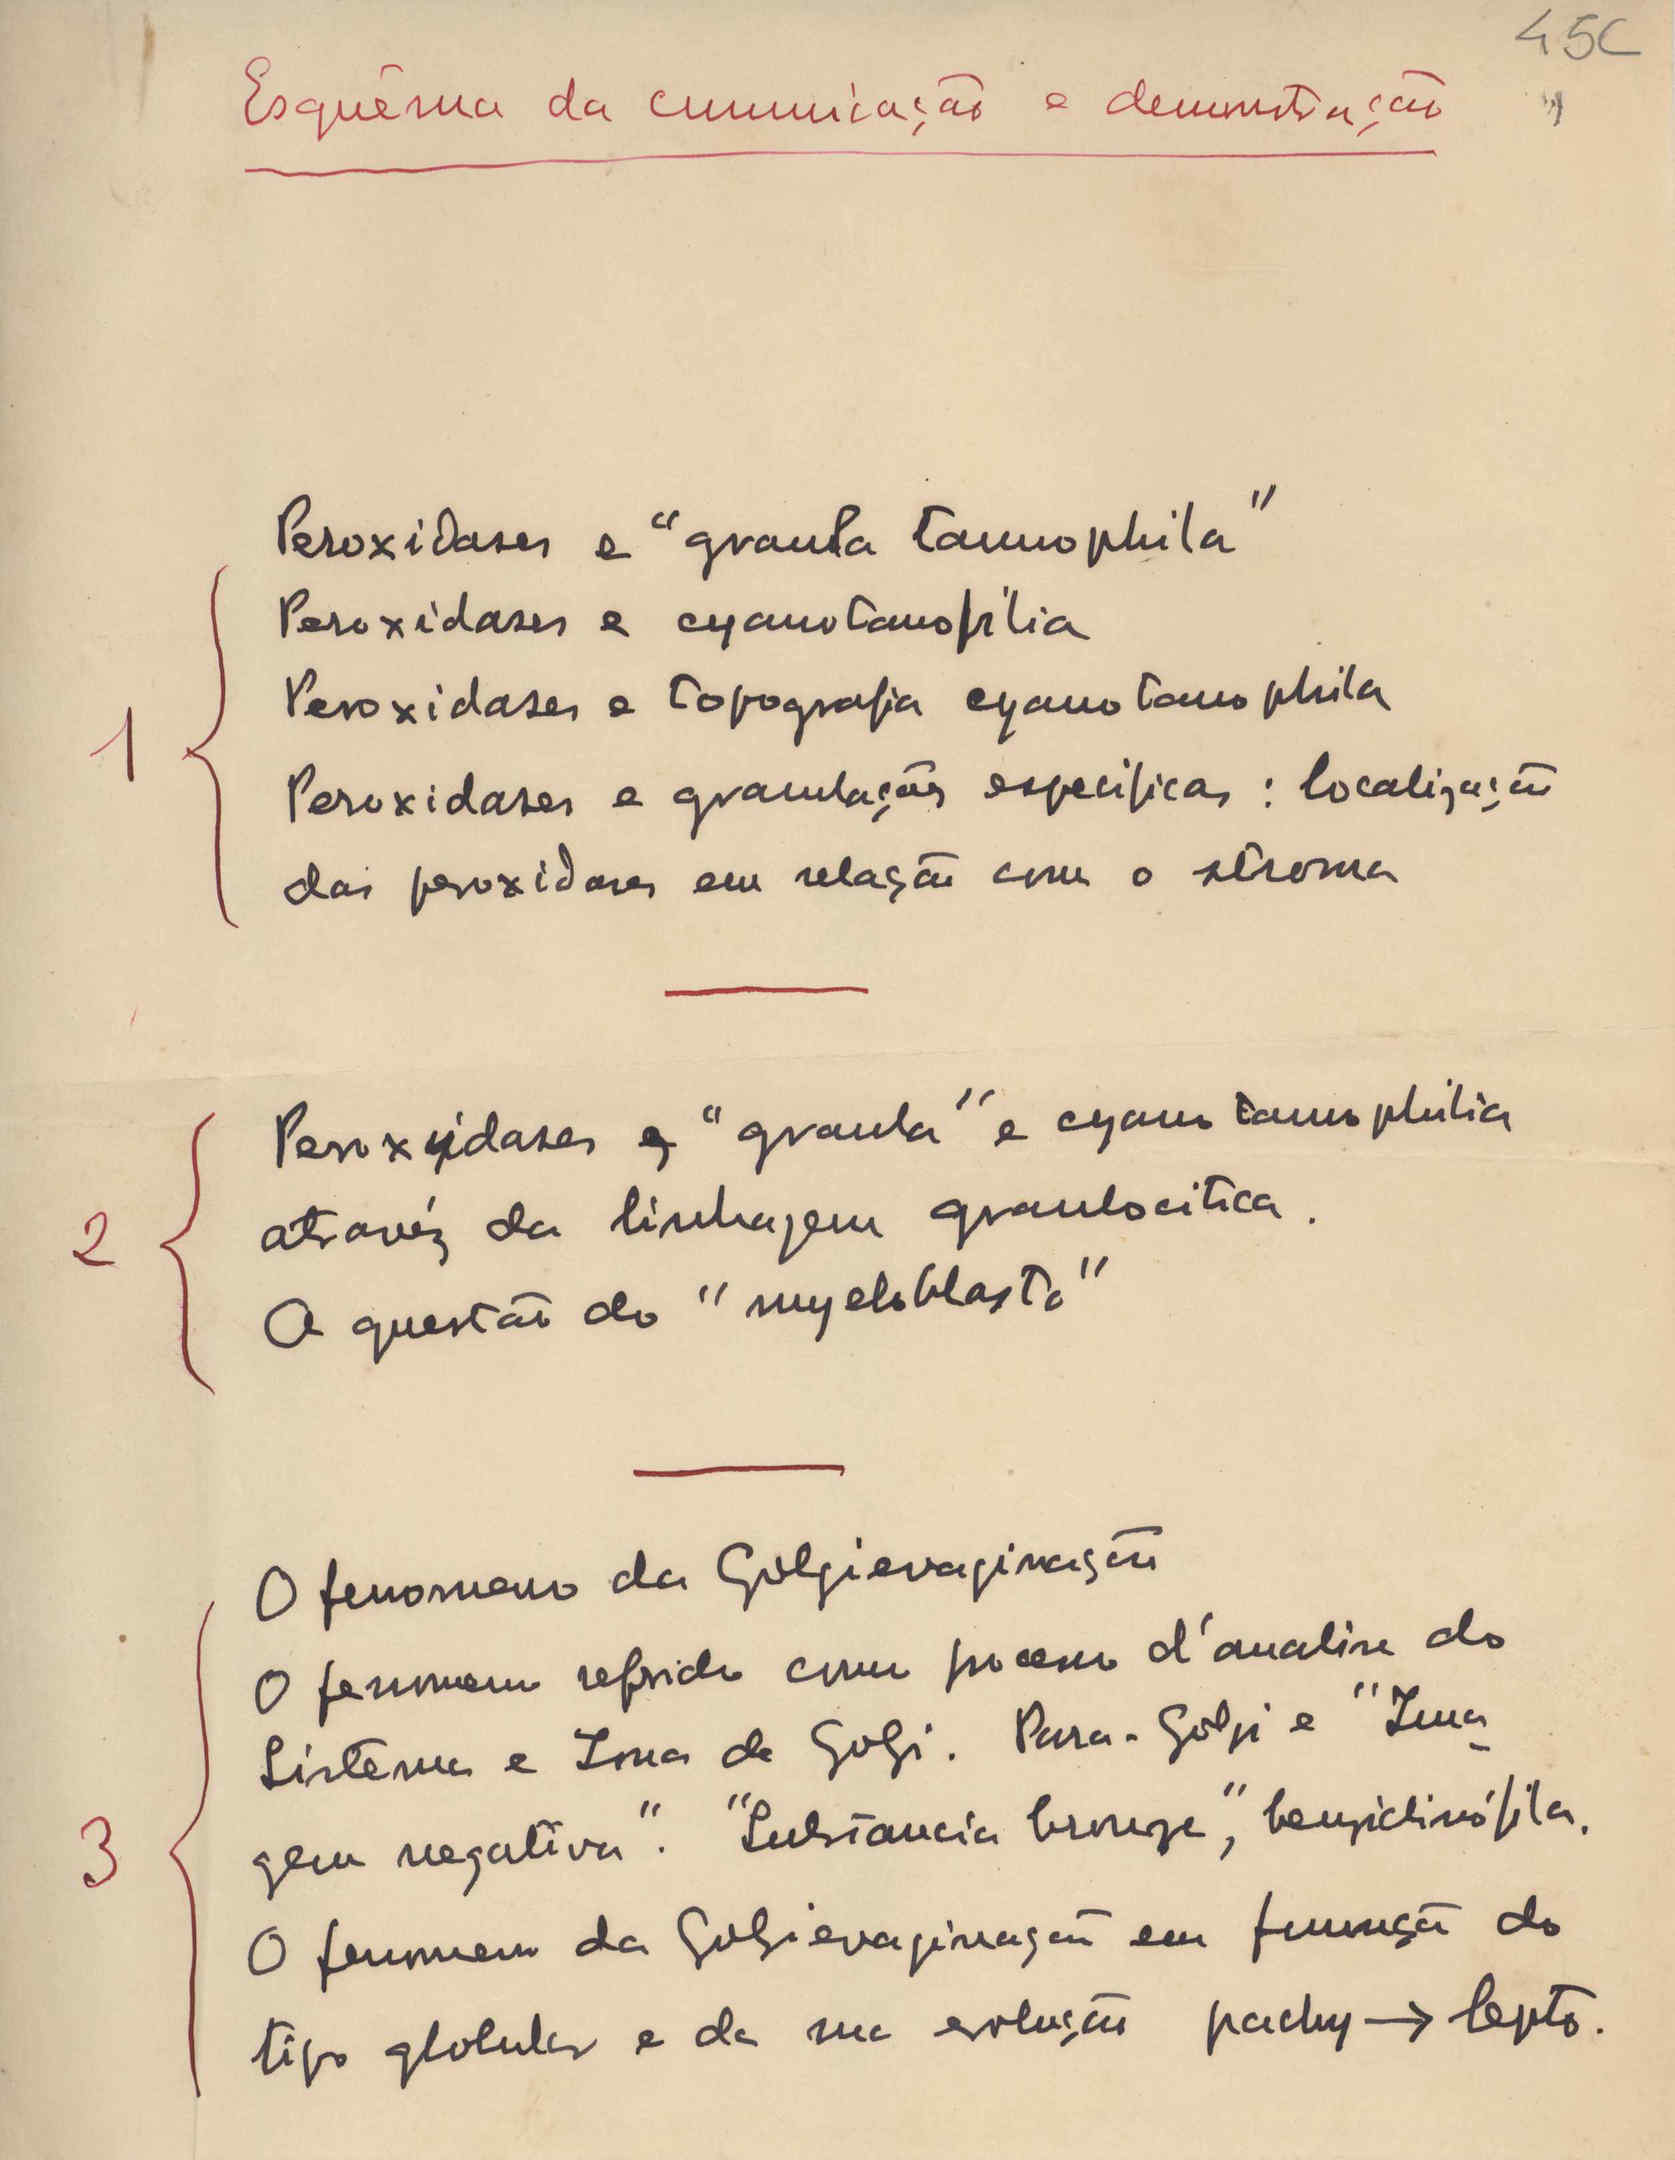 45C
Esquêma da comunicação e demonstração
Peroxidases e "granula tannophila"
Peroxidases e cyanotanofilia
Peroxidases e topografia cyanotanophila
1
Peroxidases e granulações especificas : localização
das peroxidases em relação com o stroma
Peroxidases e "granula" e cyanotannophilia
atravéz da linhagem granulocitica.
2
A questão do "myeloblasto"
O fenomeno da Golgievaginação
O fenomeno referido como processo d'analise do
Sistema e Zona de Golgi. Para-Golgi e "Ima
3
gem negativa". "Substancia bronze", benzidinófila.
O fenomeno da Golgievaginação em funcção do
tipo globular e da sua evolução pachy → lepto.